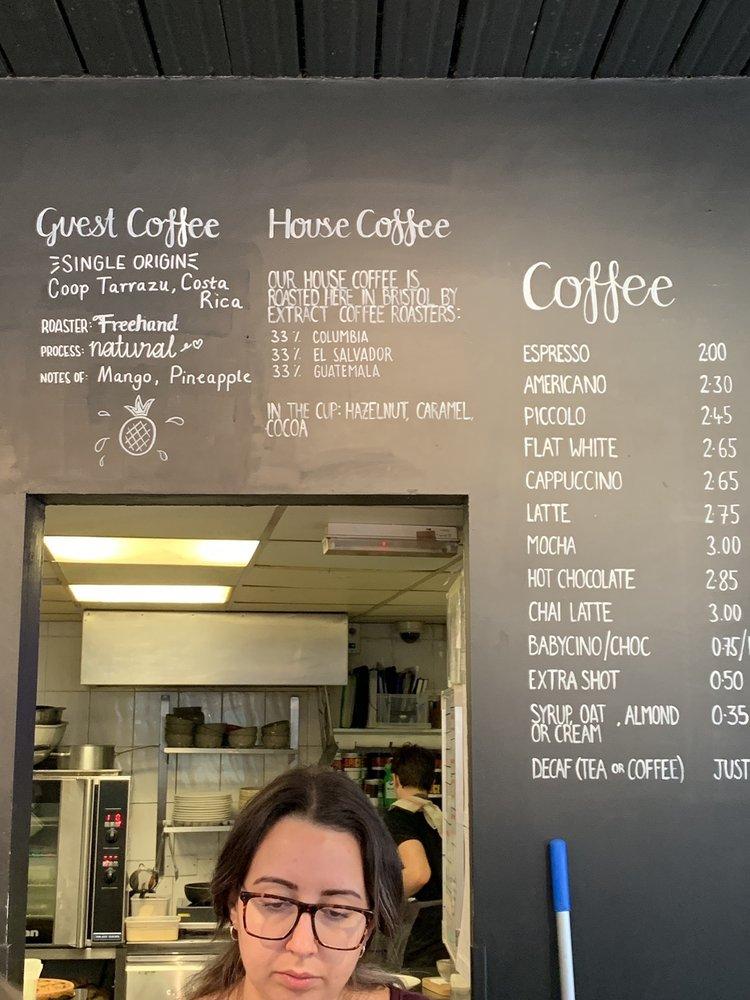 Guest Coffee
SINGLE ORIGIN
Coop Tarrazu, Costa
Rica
ROASTER: Freehand
PROCESS: natural
NOTES OF: Mango, Pineapple
House Coffee
OUR HOUSE COFFEE IS
ROASTED HERE IN BRISTOL BY
EXTRACT COFFEE ROASTERS:
33% COLUMBIA
33% EL SALVADOR
33% GUATEMALA
IN THE CUP: HAZELNUT, CARAMEL,
COCOA
Coffee
ESPRESSO 2.00
AMERICANO 2.30
PICCOLO 2.45
FLAT WHITE 2.65
CAPPUCCINO 2.65
LATTE 2.75
MOCHA 3.00
HOT CHOCOLATE 2.85
CHAI LATTE 3.00
BABYCINO/CHOC 0.75/
EXTRA SHOT 0.50
SYRUP, OAT , ALMOND 0.35
OR CREAM
DECAF (TEA OR COFFEE) JUST